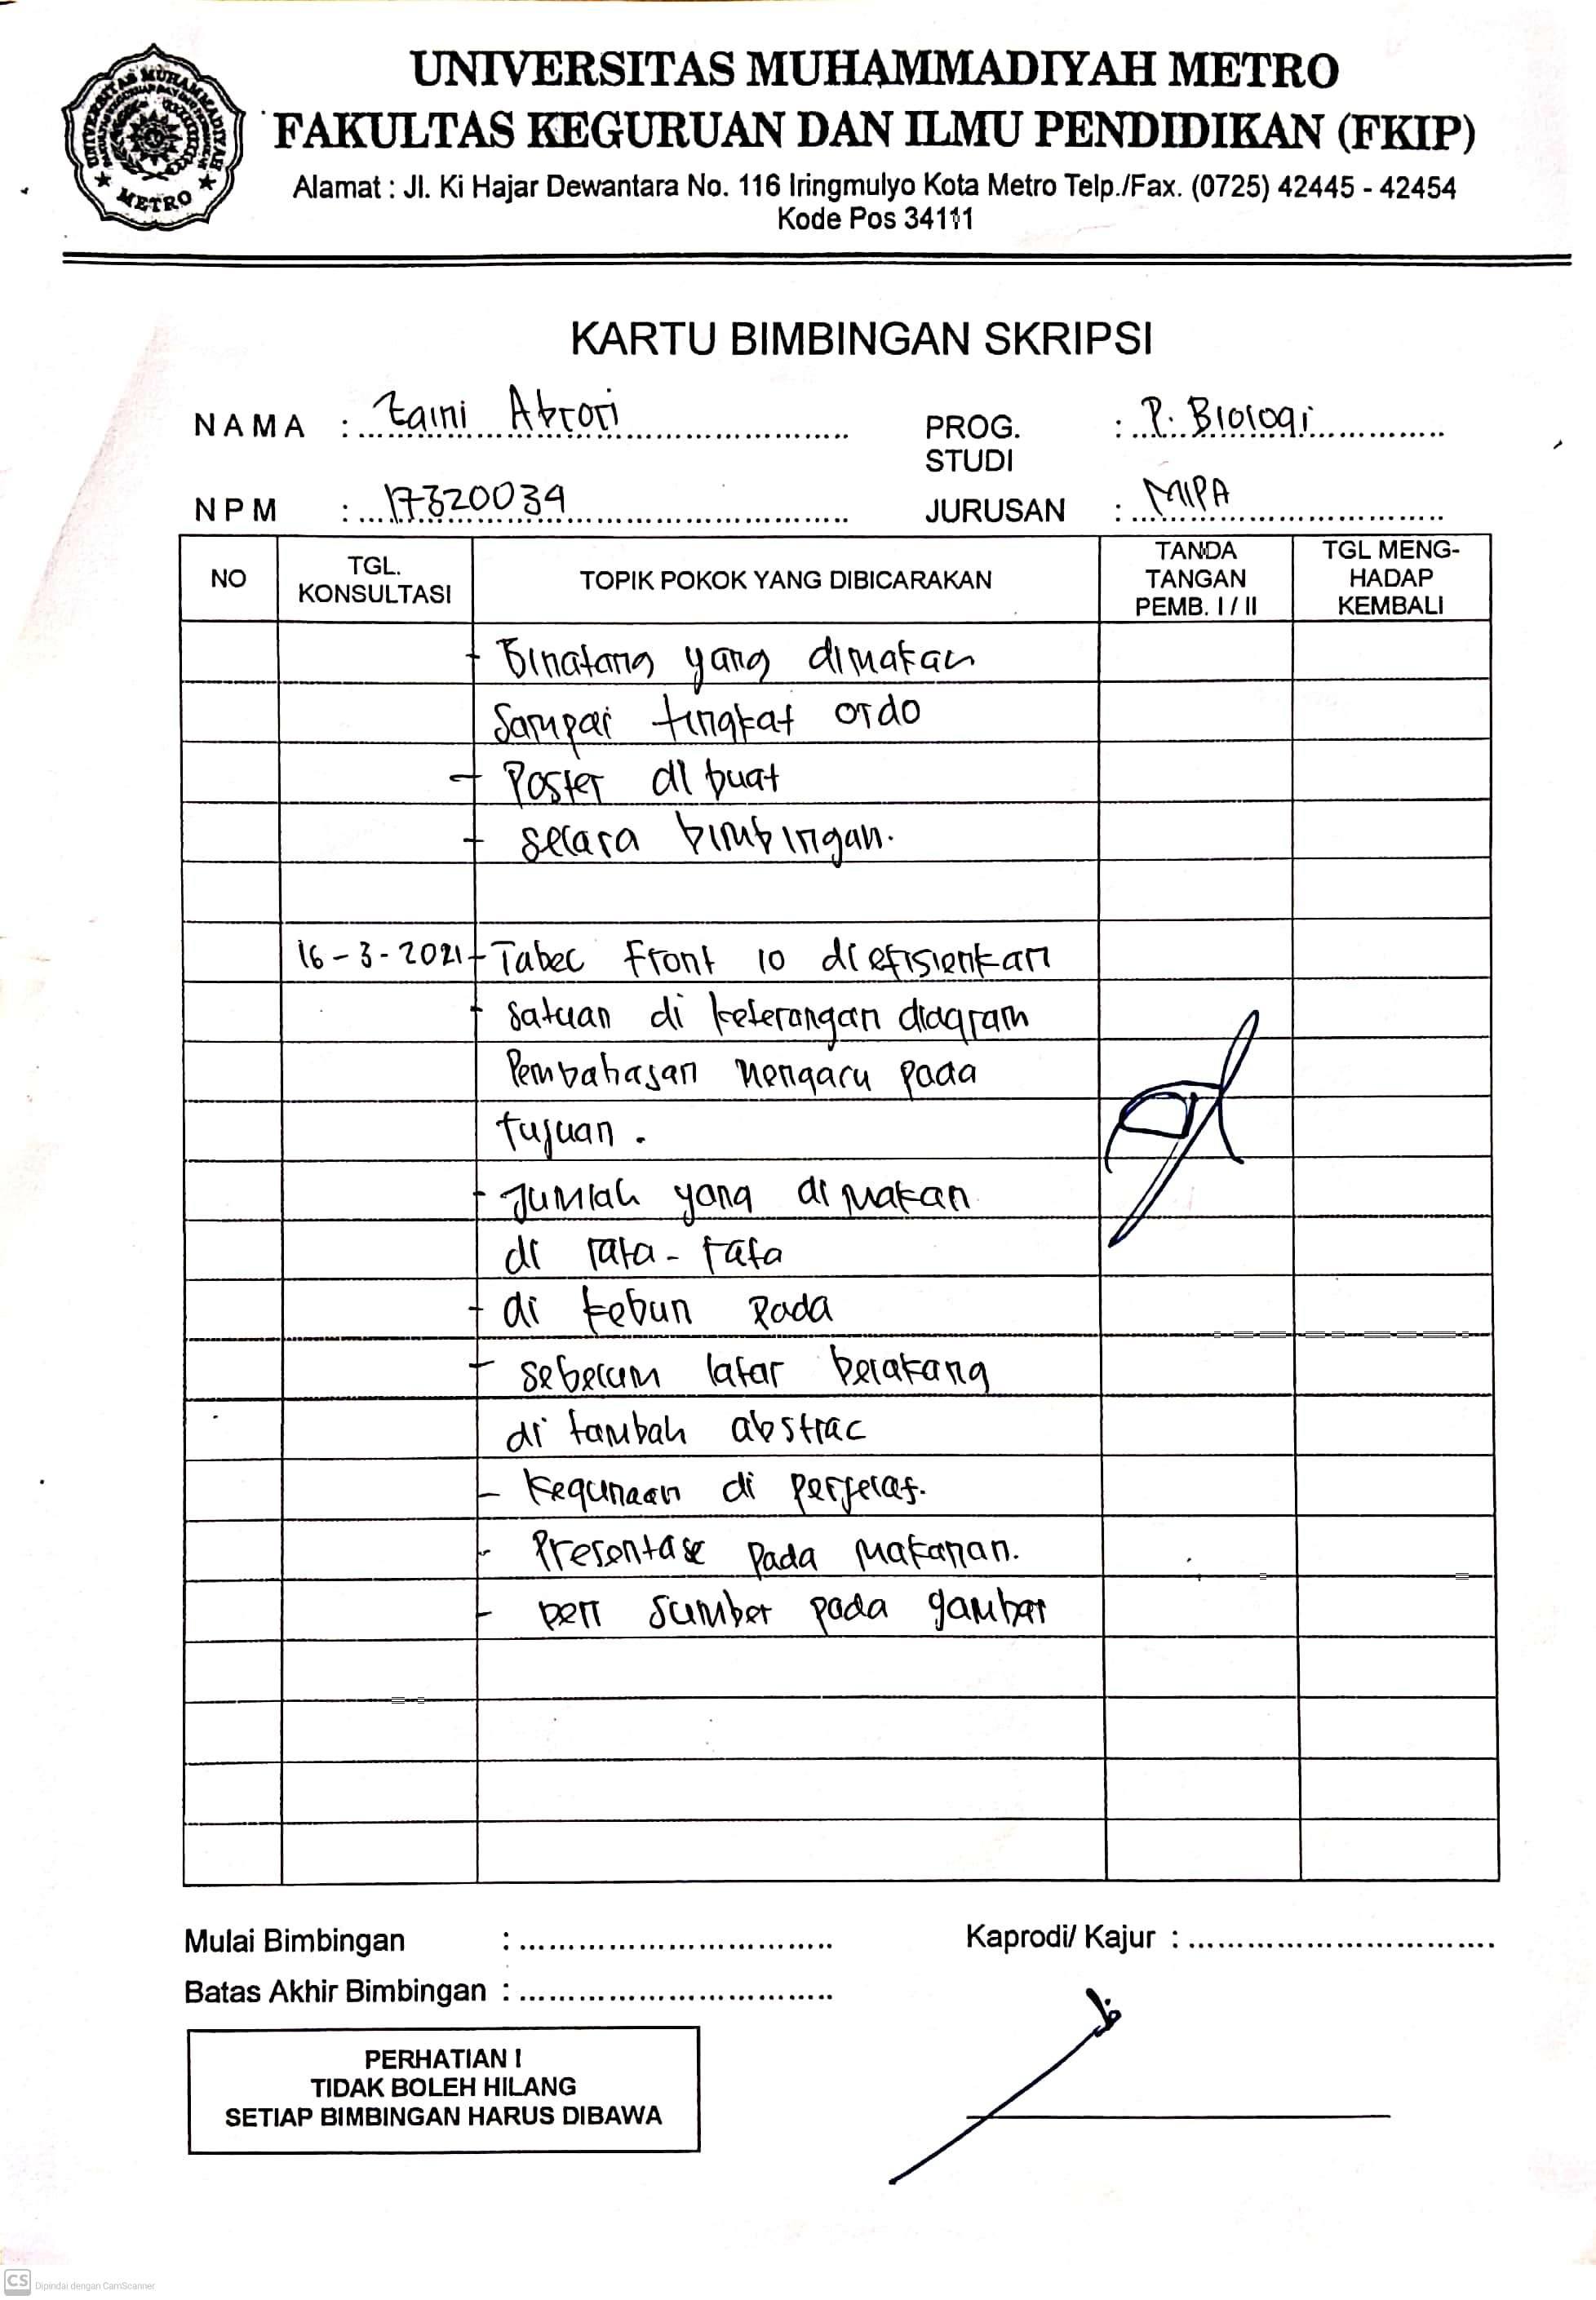 UNIVERSITAS MUHAMMADIYAH METRO
FAKULTAS KEGURUAN DAN ILMU PENDIDIKAN (FKIP)
Alamat : Jl. Ki Hajar Dewantara No. 116 Iringmulyo Kota Metro Telp./Fax. (0725) 42445 - 42454
Kode Pos 34111
METRO
KARTU BIMBINGAN SKRIPSI
NAMA : Zaini Abrori
PROG. STUDI : P. Biologi
NPM : 17320034
JURUSAN : MIPA
NO TGL. KONSULTASI TOPIK POKOK YANG DIBICARAKAN TANDA TANGAN PEMB. I / II TGL MENG-HADAP KEMBALI
- Binatang yang dimakan
sampai tingkat ordo
- Poster di buat
- secara bimbingan.
16-3-2021 - Tabel Front 10 di efisienkan
- satuan di keterangan diagram
Pembahasan mengacu pada
tujuan.
- Jumlah yang di makan
di rata-rata
- di kebun pada
- sebelum latar belakang
di tambah abstrac
- kegunaan di perjelas.
- Presentase pada makanan.
- beri sumber pada gambar
Mulai Bimbingan :
Kaprodi/ Kajur :
Batas Akhir Bimbingan :
PERHATIAN !
TIDAK BOLEH HILANG
SETIAP BIMBINGAN HARUS DIBAWA
CS Dipindai dengan CamScanner